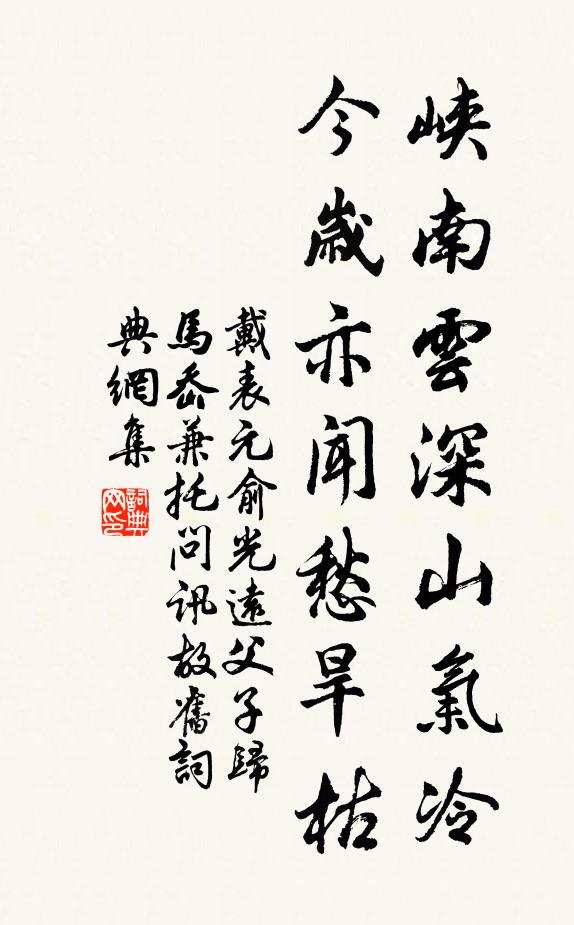 峽南雲深山氣冷
今歲亦聞愁旱枯
戴表元俞光遠父子歸
馬岙兼托問訊故舊詞
典網集
詞典网印